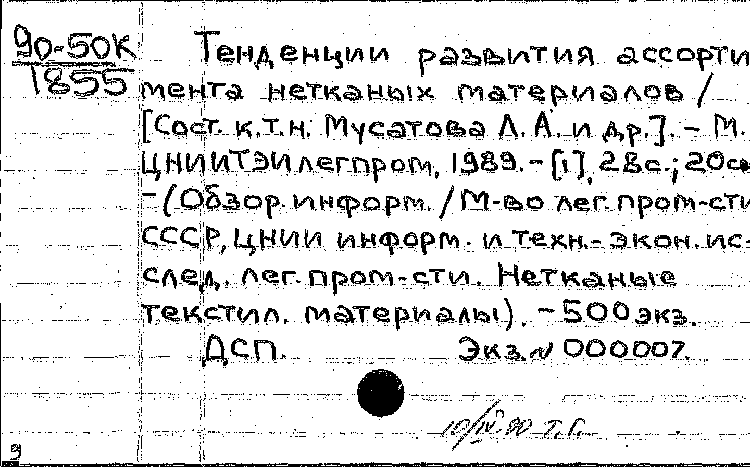 90-50К
1855
Тенденции развития ассорти
мента нетканых материалов /
[Сост. к.т.н. Мусатова Л. А. и др.]. – М.
ЦНИИТЭИлегпром, 1989. – [1], 28с.; 20см
– (Обзор. информ. / М-во лег. пром-сти
СССР, ЦНИИ информ. и техн.-экон. ис-
след. лег. пром-сти. Нетканые
текстил. материалы). – 500 экз.
ДСП. Экз. N 000007.
10/IV-90 Т.Г.
9